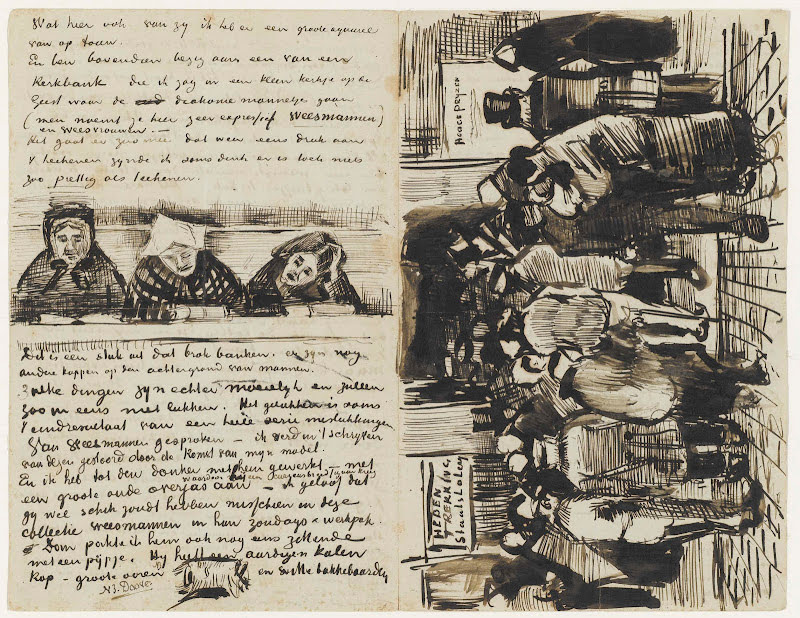 Wat hier ook van zy ik heb er een groote aquarel
van op touw.
En ben bovendien bezig aan een van een
Kerkbank die ik zag in een klein kerkje op de
Geest waar de diakonie mannetjes gaan
(men noemt ze hier zeer expressief weesmannen)
en weesvrouwen. —
Het gaat er zoo mee dat weer eens druk aan
't teekenen zynde ik soms denk er is toch niets
zoo prettig als teekenen.
Dit is een stuk uit dat brok banken. er zyn nog
andere koppen op den achtergrond van mannen.
Zulke dingen zyn echter moeielyk en zullen
zoo in eens niet lukken. Het gelukken is soms
't eindresultaat van een heele serie mislukkingen
Van weesmannen gesproken – ik werd in 't schryven
van dezen gestoord door de komst van myn model.
En ik heb tot den donker met hem gewerkt – met
waardoor hy een figuur kryg
een groote oude overjas aan – ik geloof dat
gy wel schik zoudt hebben misschien in deze
collectie weesmannen in hun zondags & werkpak.
Dan pakte ik hem ook nog eens zittende
met een pypje. Hy heeft een aardigen kalen
kop – groote ooren en witte bakkebaarden
N.B. Doove
HEDEN
TREKKING
StaatsLotery